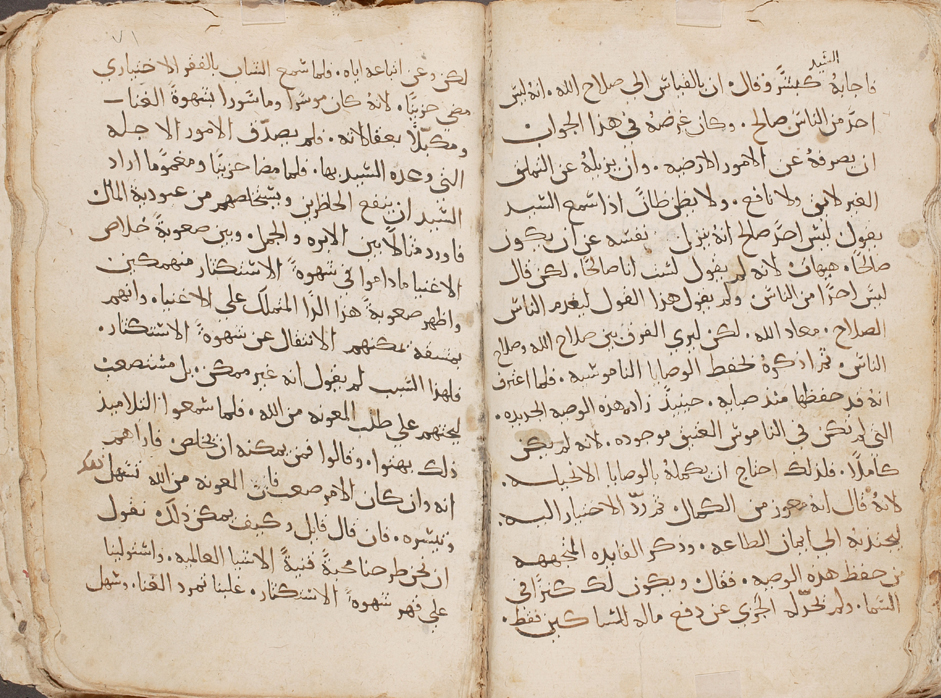 السيد
فاجابهُ كبشرٍ وقال. ان بالقياس الى صلاح الله. انهُ ليس
احدٌ من الناس صالح. وكان غرضهُ في هذا الجواب
ان يصرفهُ عن الامور الارضيه. وان يزيلهُ عن التملق
الغير لايق ولا نافع. ولا يظن ظانٌ اذا سمع السيد
يقول ليس احدٌ صالح انه نزل نفسه عن ان يكون
صالحًا. هيهات لانه لم يقول لست انا صالحًا. لكن قال
ليس احدًا من الناس. ولم يقول هذا القول ليعدم الناس
الصلاح. معاد الله. لكن ليري الفرق بين صلاح الله وصلاح
الناس. ثم اذكرهُ لحفظ الوصايا الناموسيه. فلما اعترف
انه قد حفظها منذ صبايه. حينيذٍ زاده هذه الوصيه الجديده.
التي لم تكن في الناموس العتيق موجوده. لانه لم يكن
كاملًا. فلذلك احتاج ان يكملهُ بالوصايا الانجيليه.
لانهُ قال انه يعوز من الكمال. ثم ردّ الاختيار اليه.
ليجذبهُ الى ايمان الطاعه. وذكر الفايده المتجهه
من حفظ هذه الوصيه. فقال ويكون لك كنزًا في
السما. ولم تحدّ له الجزي عن دفع ماله للمساكين فقط.
٧١
لكن وعن اتباعه اياه. فلما سمع الشاب بالفقر الاختياري
مضى حزينًا. لانهُ كان موسرًا وماسورًا بشهوة الغنا
ومكبّلًا بعقالاته. فلم يصدّق الامور الاجله
التي وعده السيد بها. فلما مضا حزينًا ومغمومًا اراد
السيد ان ينفع الحاظرين ويستخلصهم من عبودية المال
فاورد مثالًا بين الابره والجمل. وبين صعوبة خلاص
الاغنيا ماداموا في شهوة الاستكثار منهمكين
واظهر صعوبة هذا الدا المتملك على الاغنيا. وانهم
بمشقه يمكنهم الانتقال عن شهوة الاستكثار.
فلهذا السبب لم يقول انه غير ممكن. بل مستصعب
ليحثهم على طلب المعونه من الله. فلما سمعوا التلاميذ
ذلك بهتوا. وقالوا فمن يمكنه ان يخلص. فاراهم
انه وان كان الامر صعب فان المعونه من الله تسهل
وتيسره. فان قال قايل وكيف يمكن ذلك نقول
ان نحن طرحنا محبة قنية الاشيا العالميه. واستولينا
على قهر شهوة الاستكثار. علينا تمرد الغنا. وسهل